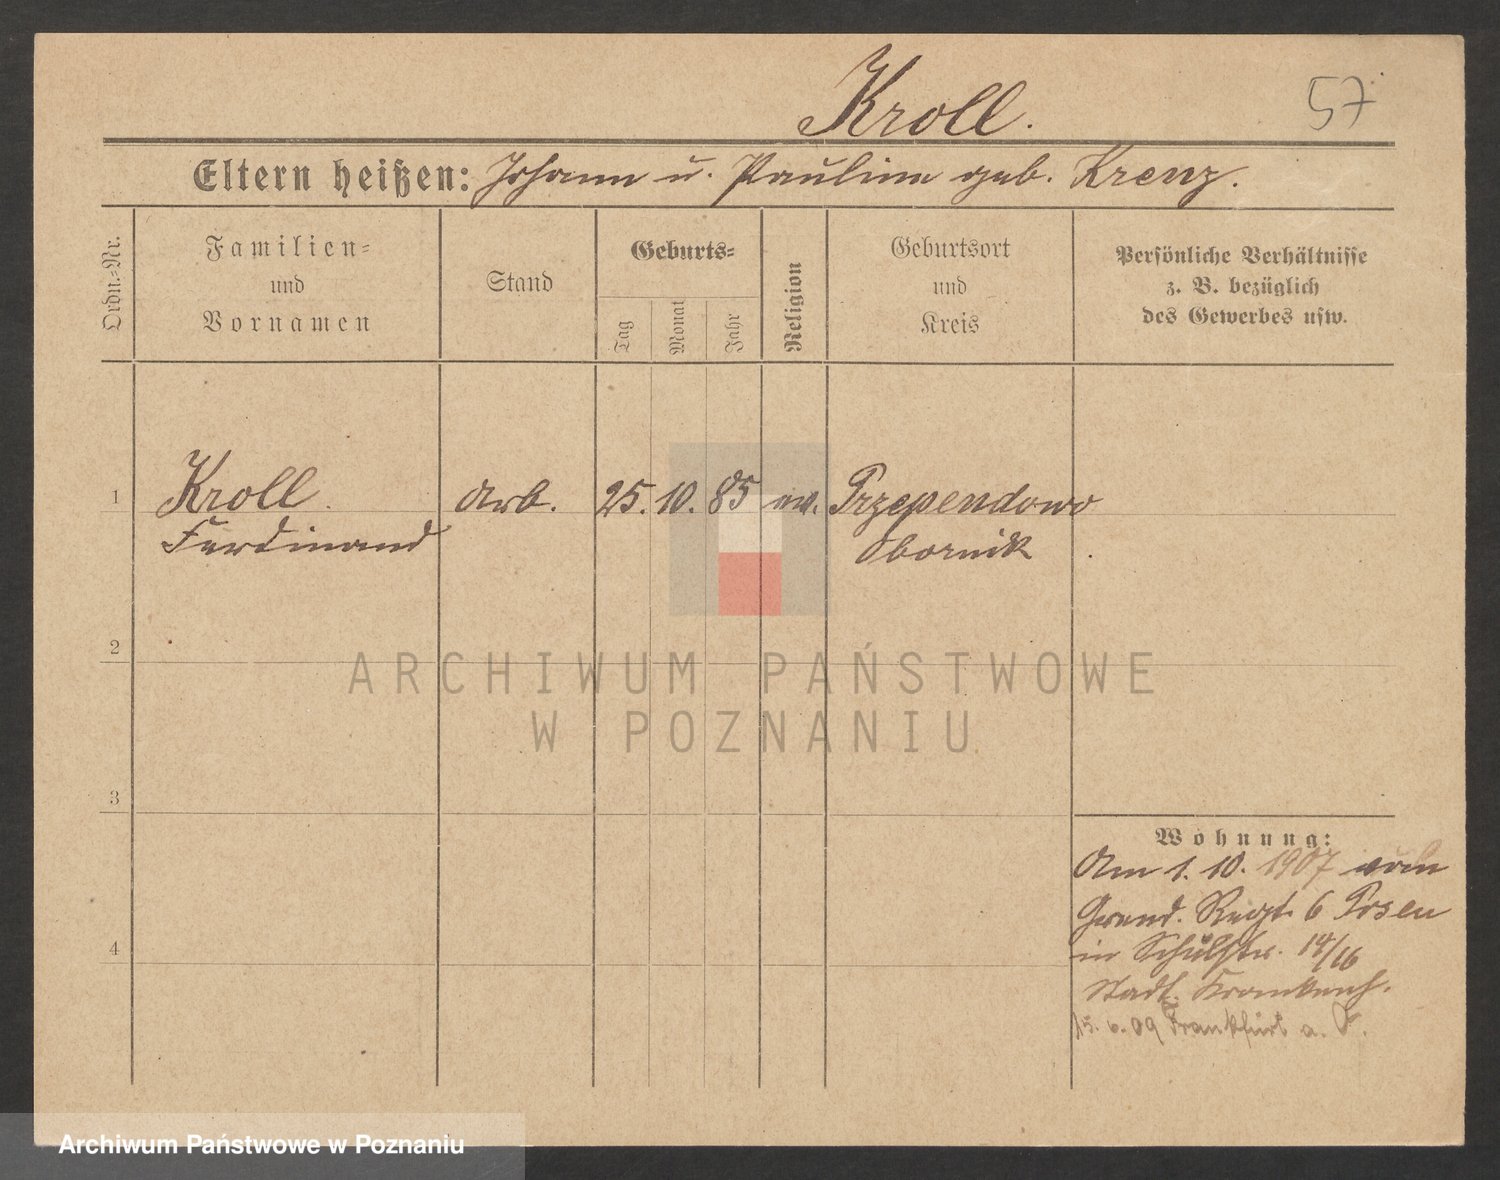 Kroll.
57
Eltern heißen: Johann u. Pauline geb. Krenz.
Ordn.-Nr.
Familien-
und
Vornamen
Stand
Geburts-
Tag
Monat
Jahr
Religion
Geburtsort
und
Kreis
Persönliche Verhältnisse
z. B. bezüglich
des Gewerbes usw.
1
Kroll.
Ferdinand
Arb.
25. 10. 85
ev.
Przependowo
Obornik
2
3
4
Wohnung:
Am 1. 10. 1907 vom
Grend. Regt. 6 Posen
in Schulstr. 14/16
Stadt. Krankenh.
15. 6. 09 Frankfurt a. O.
ARCHIWUM PAŃSTWOWE
W POZNANIU
Archiwum Państwowe w Poznaniu